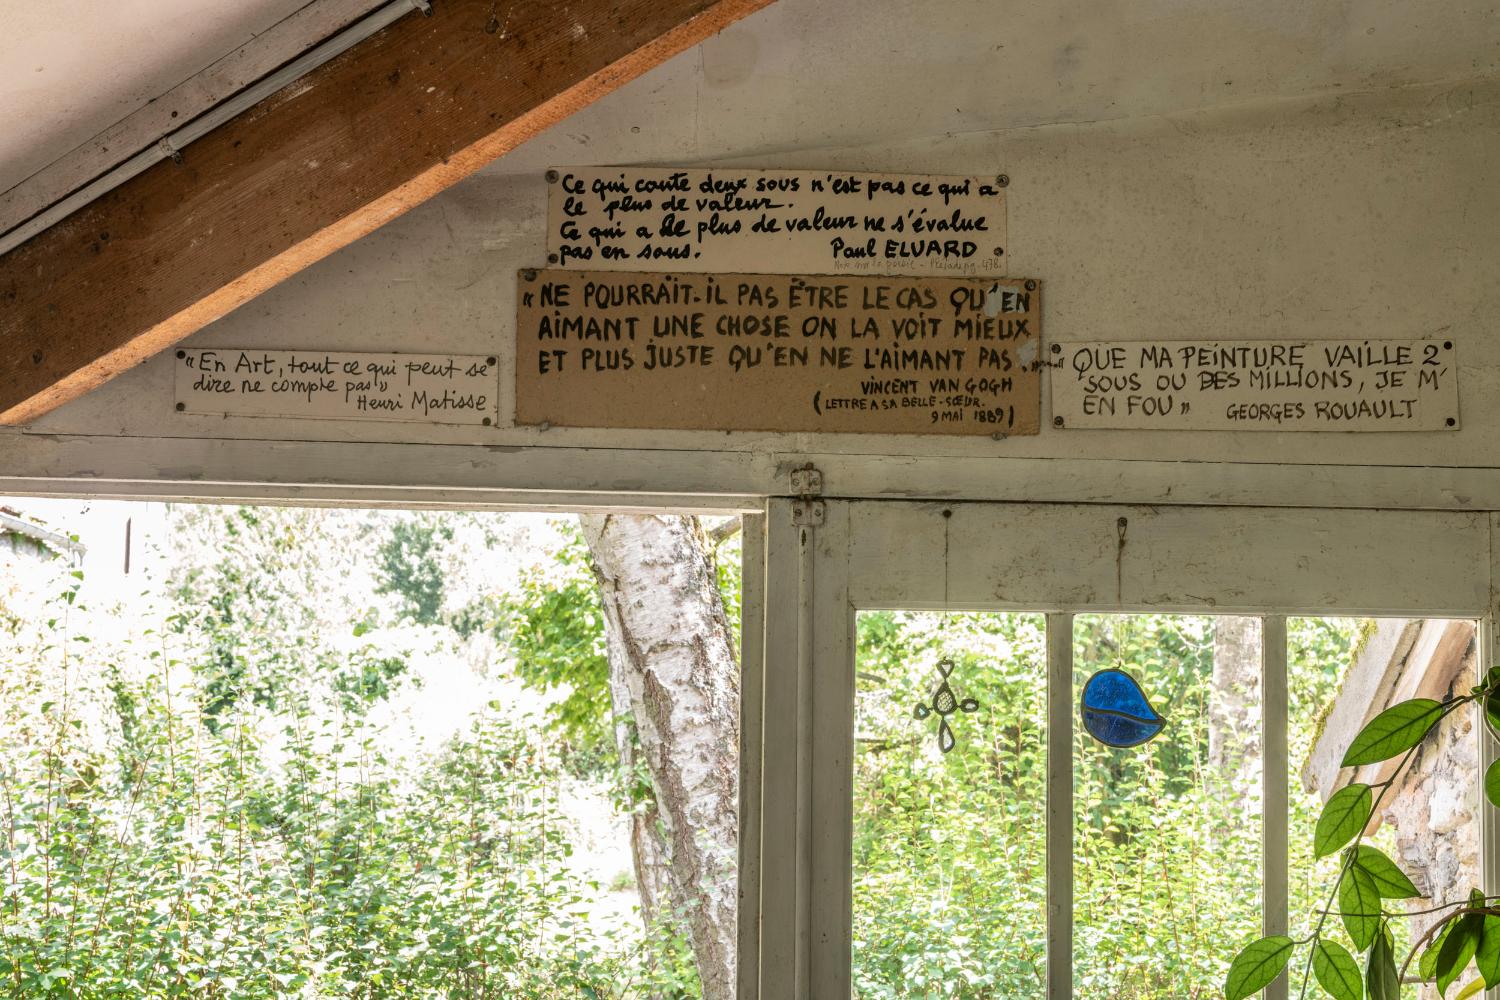 Ce qui coute deux sous n'est pas ce qui a
le plus de valeur.
Ce qui a le plus de valeur ne s'évalue
pas en sous. Paul ELUARD
Pleiade pg. 478.
« NE POURRAIT-IL PAS ÊTRE LE CAS QU'EN
AIMANT UNE CHOSE ON LA VOIT MIEUX
ET PLUS JUSTE QU'EN NE L'AIMANT PAS. »
VINCENT VAN GOGH
( LETTRE A SA BELLE-SŒUR.
9 MAI 1889 )
« En Art, tout ce qui peut se
dire ne compte pas »
Henri Matisse
« QUE MA PEINTURE VAILLE 2
SOUS OU DES MILLIONS, JE M'
EN FOU » GEORGES ROUAULT